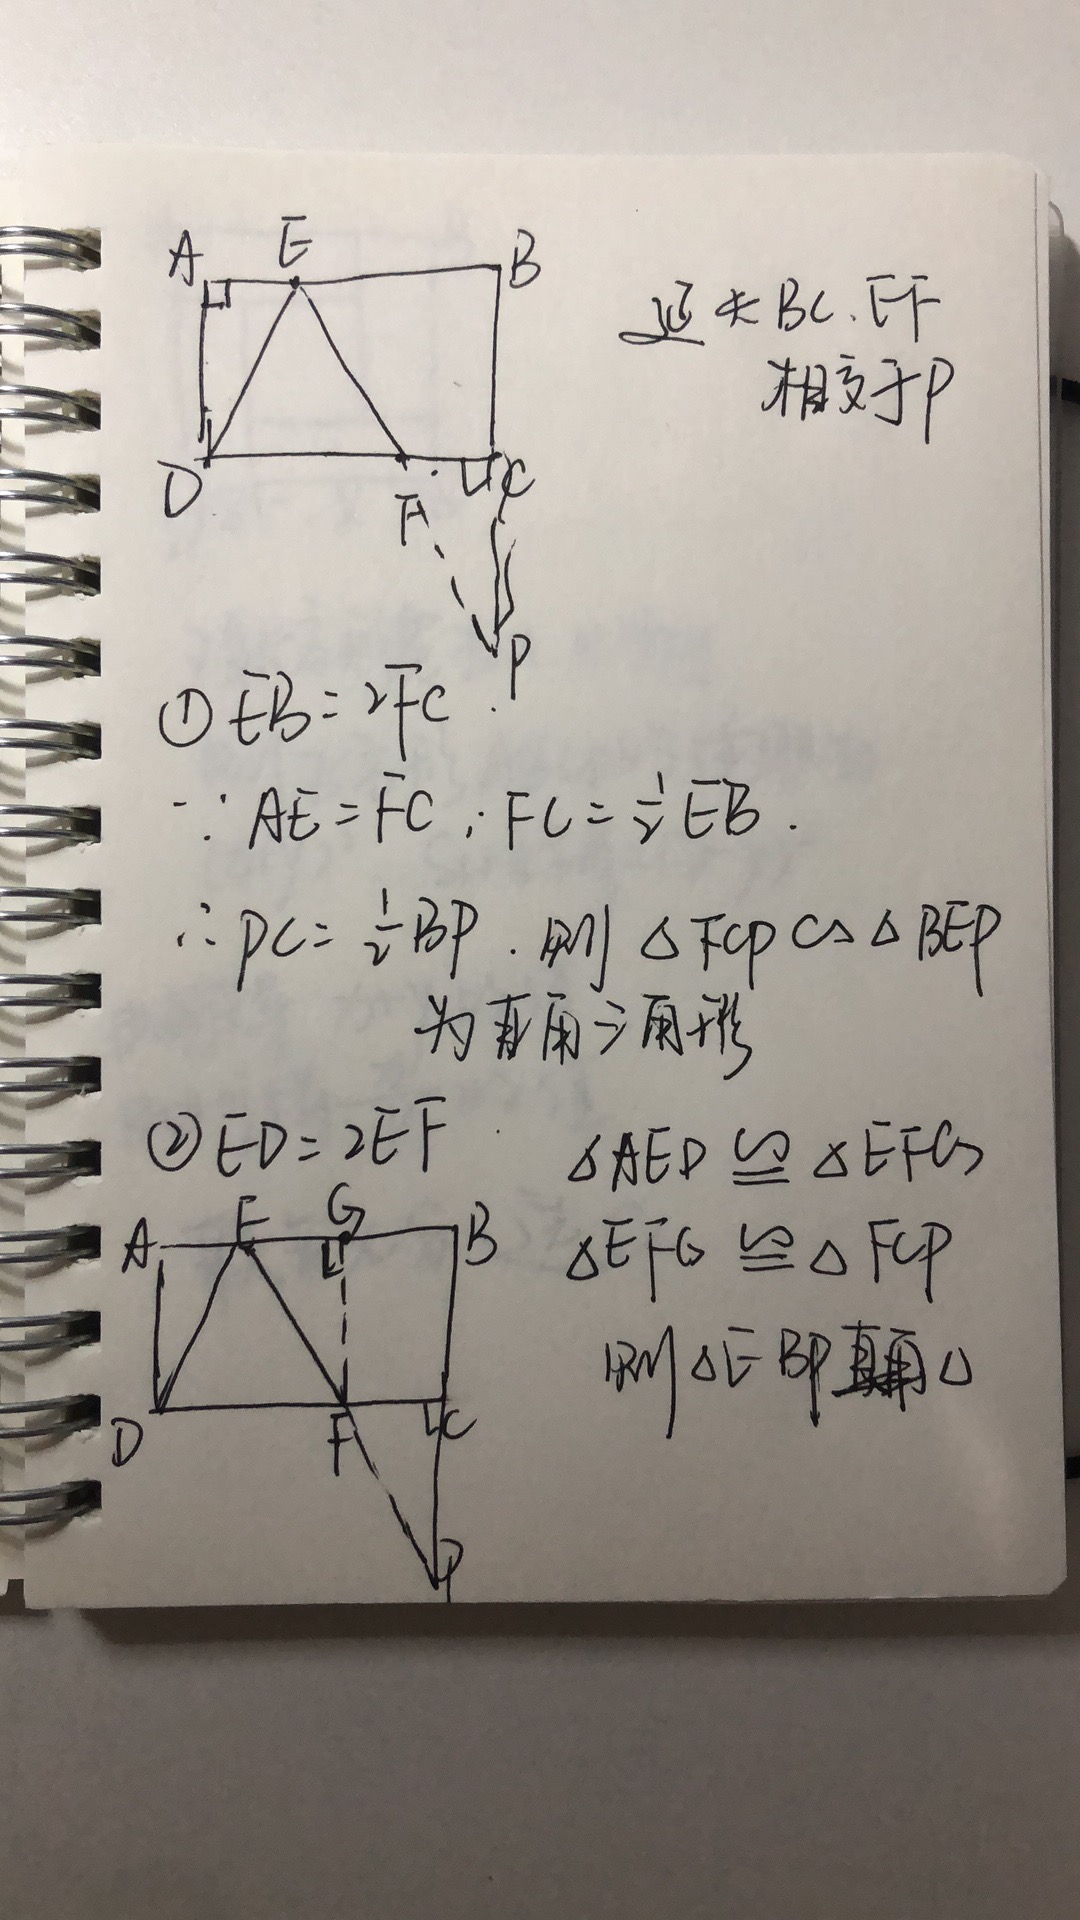 A E B
延长BC.EF
相交于P
D F C
P
① EB=2FC.
∵ AE=FC, ∴ FC=½EB.
∴ PC=½BP. 则 △FCP ∽ △BEP
为直角三角形
② ED=2EF
△AED ≌ △EFG
A E G B
△EFG ≌ △FCP
则△EBP直角△
D F C
P